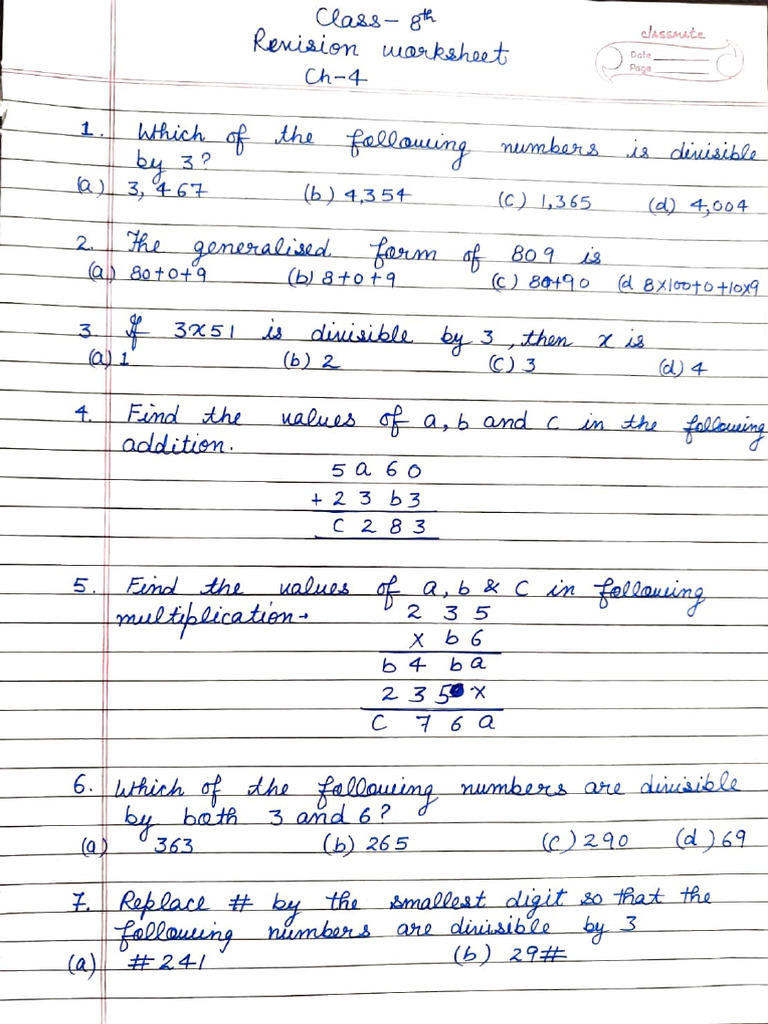 Class - 8th
Revision worksheet
Ch-4
classmate
Date
Page
1. Which of the following numbers is divisible
by 3?
(a) 3,467 (b) 4,354 (c) 1,365 (d) 4,004
2. The generalised form of 809 is
(a) 80+0+9 (b) 8+0+9 (c) 80+90 (d 8×100+0+10×9
3 If 3x51 is divisible by 3, then x is
(a) 1 (b) 2 (c) 3 (d) 4
4. Find the values of a, b and c in the following
addition.
5 a 6 0
+ 2 3 b 3
c 2 8 3
5. Find the values of a, b & c in following
multiplication.
2 3 5
× b 6
b 4 b a
2 3 5 ×
c 7 6 a
6. Which of the following numbers are divisible
by both 3 and 6?
(a) 363 (b) 265 (c) 290 (d) 69
7. Replace # by the smallest digit so that the
following numbers are divisible by 3
(a) #241 (b) 29#